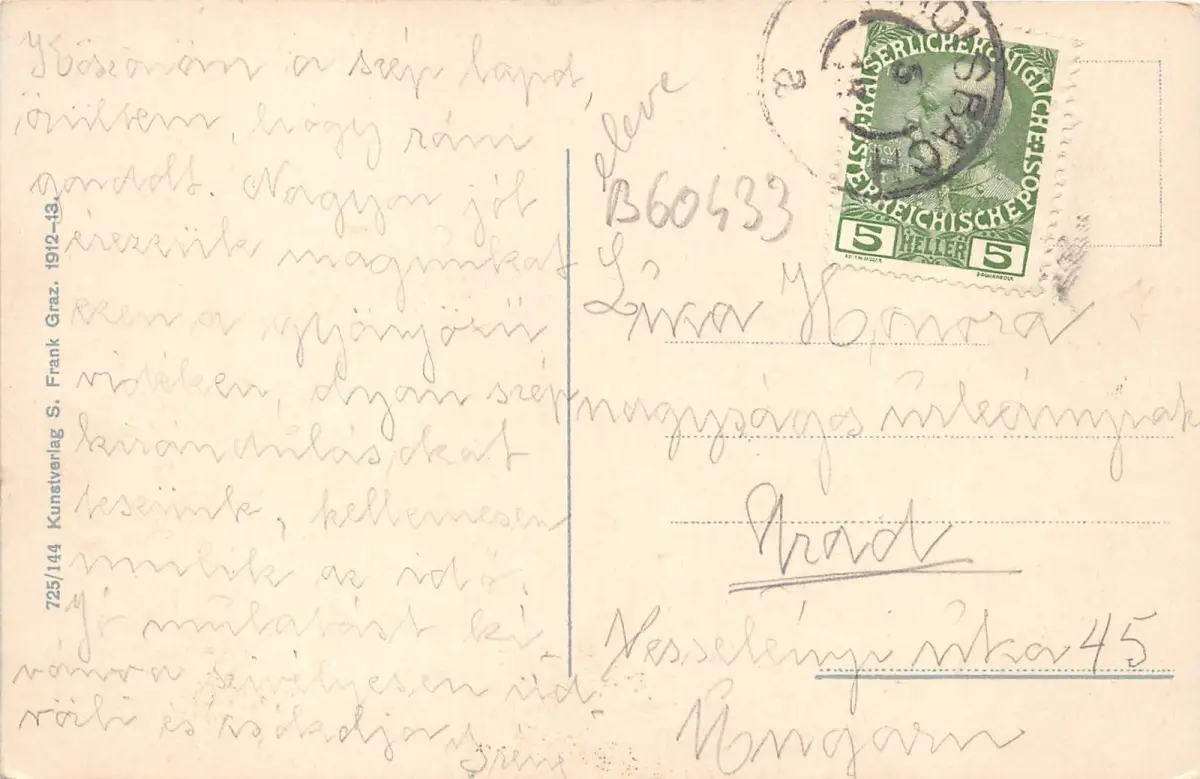 Köszönöm a szép lapot,
örültem, hogy rám
gondolt. Nagyon jól
érezzük magunkat
ezen a gyönyörű
vidéken, olyan szép
kirándulásokat
teszünk, kellemesen
múlik az idő.
Jó mulatást kí-
vánva szivélyesen üd-
vözli és csókolja
Iréne
725/144 Kunstverlag S. Frank Graz. 1912-13.
B60433
KAISERLICHE KÖNIGLICHE ÖSTERREICHISCHE POST
5 HELLER 5
Lika Honora
nagyságos úrleánynak
Arad
Vesselényi útka 45
Ungarn